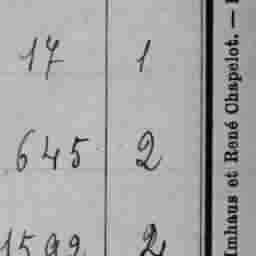 17 1
645 2
1599 2
Imhaus et René Chapelot. —